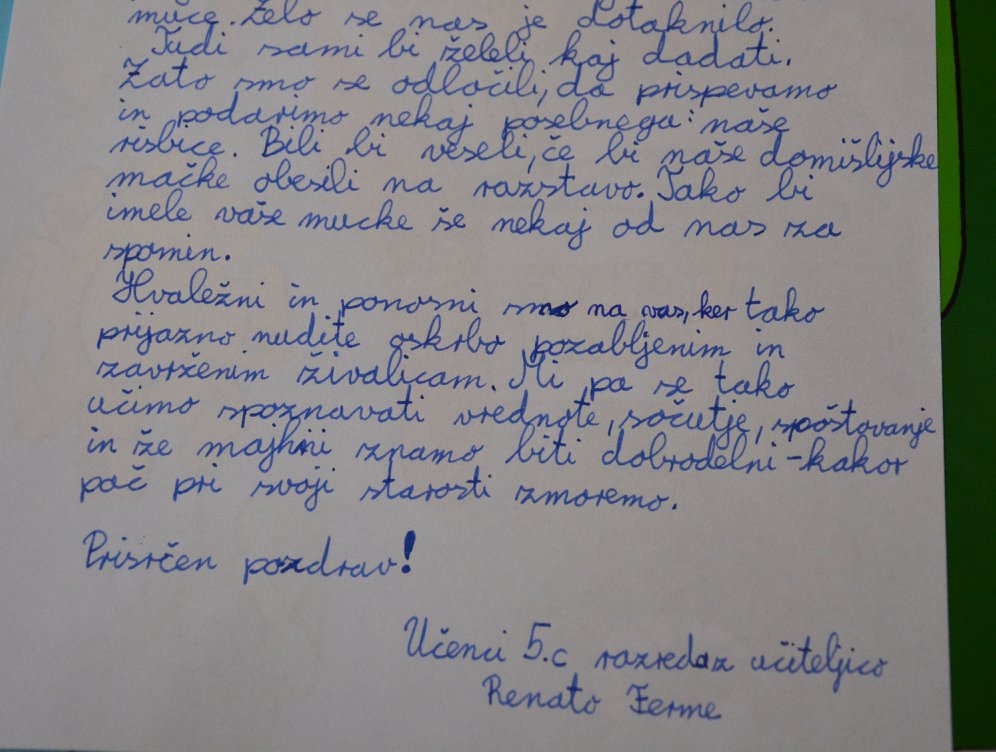 muce. Zelo se nas je dotaknilo.
Tudi sami bi želeli kaj dodati.
Zato smo se odločili, da prispevamo
in podarimo nekaj posebnega: naše
risbice. Bili bi veseli, če bi naše domišljijske
mačke obesili na razstavo. Tako bi
imele vaše mucke še nekaj od nas za
spomin.
Hvaležni in ponosni smo na vas, ker tako
prijazno nudite oskrbo pozabljenim in
zavrženim živalicam. Mi pa se tako
učimo spoznavati vrednote, sočutje, spoštovanje
in že majhni znamo biti dobrodelni - kakor
pač pri svoji starosti zmoremo.
Prisrčen pozdrav!
Učenci 5.c razreda z učiteljico
Renato Ferme